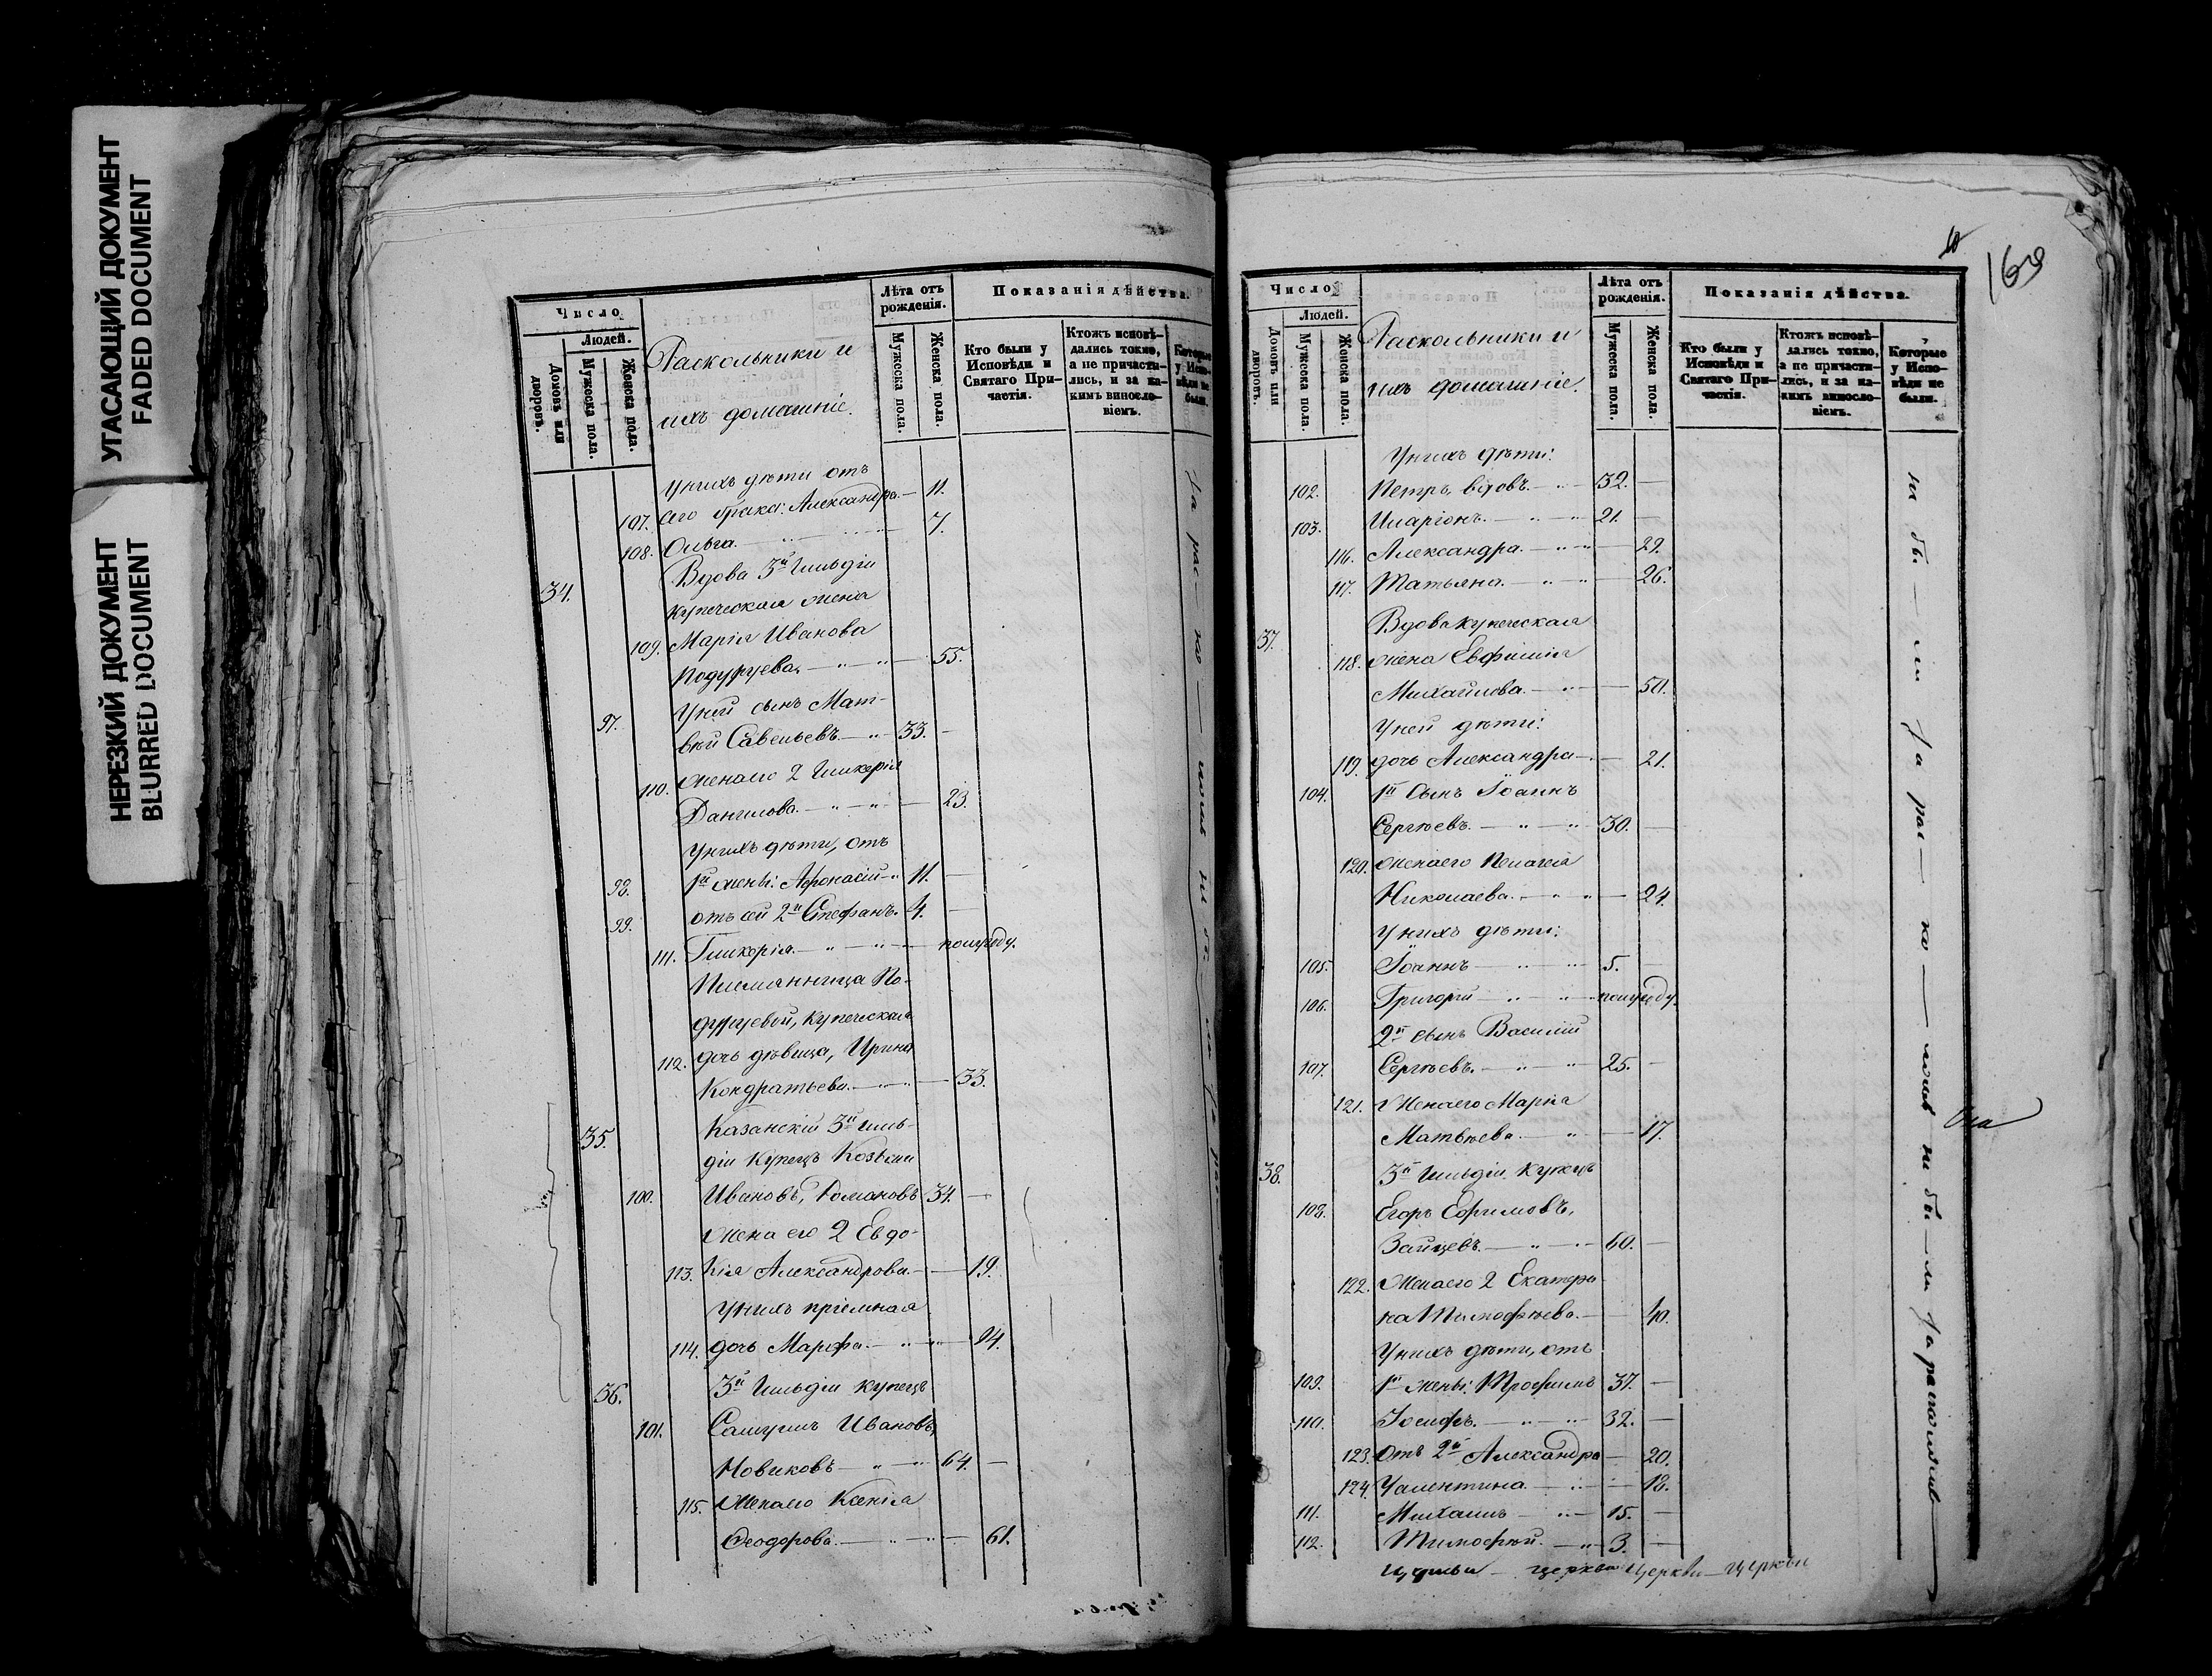 УГАСАЮЩИЙ ДОКУМЕНТ
FADED DOCUMENT
НЕРЕЗКИЙ ДОКУМЕНТ
BLURRED DOCUMENT
Число
Домовъ или дворовъ.
Людей.
Мужеска пола.
Женска пола.
Раскольники и
ихъ домашніе.
Лѣта отъ рожденія.
Мужеска пола.
Женска пола.
Показанія дѣйства.
Кто были у Исповѣди и Святаго Причастія.
Ктожъ исповѣдались токмо, а не причастились, и за какимъ винословіемъ.
Которые у Исповѣди не были.
У нихъ дѣти отъ
107. сего брака: Александра. — 11.
108. Ольга. — 7.
34. Вдова 3й Гильдіи
купеческая жена
109. Марія Иванова
Подуруева. — 55.
У ней сынъ Мат-
97. вѣй Савельевъ — 33. —
110. Жена его 2 Гликерія
Данилова. — 23.
У нихъ дѣти, отъ
98. 1й жены: Афонасій — 11. —
99. отъ сей 2й Стефанъ. 4. —
111. Гликерія. — полугоду.
Племянница По-
дуруевой, купеческая
112. дочь дѣвица, Ирина
Кондратьева. — 33.
35. Казанскій 3й Гиль-
діи Купецъ Козьма
100. Ивановъ, Романовъ 34. —
Жена его 2 Евдо-
113. кія Александрова. — 19.
У нихъ пріемная
114. дочь Марфа. — 24.
36. 3й Гильдіи купецъ
101. Самуилъ Ивановъ,
Новиковъ — 64. —
115. Жена его Ксенія
Феодорова. — 61.
160
Число
Домовъ или дворовъ.
Людей.
Мужеска пола.
Женска пола.
Раскольники и
ихъ домашніе.
Лѣта отъ рожденія.
Мужеска пола.
Женска пола.
Показанія дѣйства.
Кто были у Исповѣди и Святаго Причастія.
Ктожъ исповѣдались токмо, а не причастились, и за какимъ винословіемъ.
Которые у Исповѣди не были.
У нихъ дѣти:
102. Петръ, вдовъ. — 32. —
103. Иларіонъ. — 21. —
116. Александра. — 29.
117. Татьяна. — 26.
37. Вдова купеческая
118. жена Евфимія
Михайлова. — 50.
У ней дѣти:
119. дочь Александра — 21.
104. 1й Сынъ Іоаннъ
Сергѣевъ. — 30. —
120. Жена его Пелагея
Николаева. — 24.
У нихъ дѣти:
105. Іоаннъ — 5. —
106. Григорій — полугоду.
2й сынъ Василій
107. Сергѣевъ. — 25. —
121. Жена его Марія
Матвѣева. — 17.
38. 3й Гильдіи Купецъ
108. Егоръ Ефимовъ,
Зайцевъ. — 60. —
122. Жена его 2 Екатери-
на Тимофѣева. — 40.
У нихъ дѣти, отъ
109. 1й жены: Трофимъ 37. —
110. Іосифъ. — 32. —
123. Отъ 2й Александра — 20.
124. Уалентина. — 18.
111. Михаилъ — 15. —
112. Тимофѣй. — 3. —
церкви церкви — церкви
не бы — ли за рас — ко — ломъ не бы — ли за расколомъ